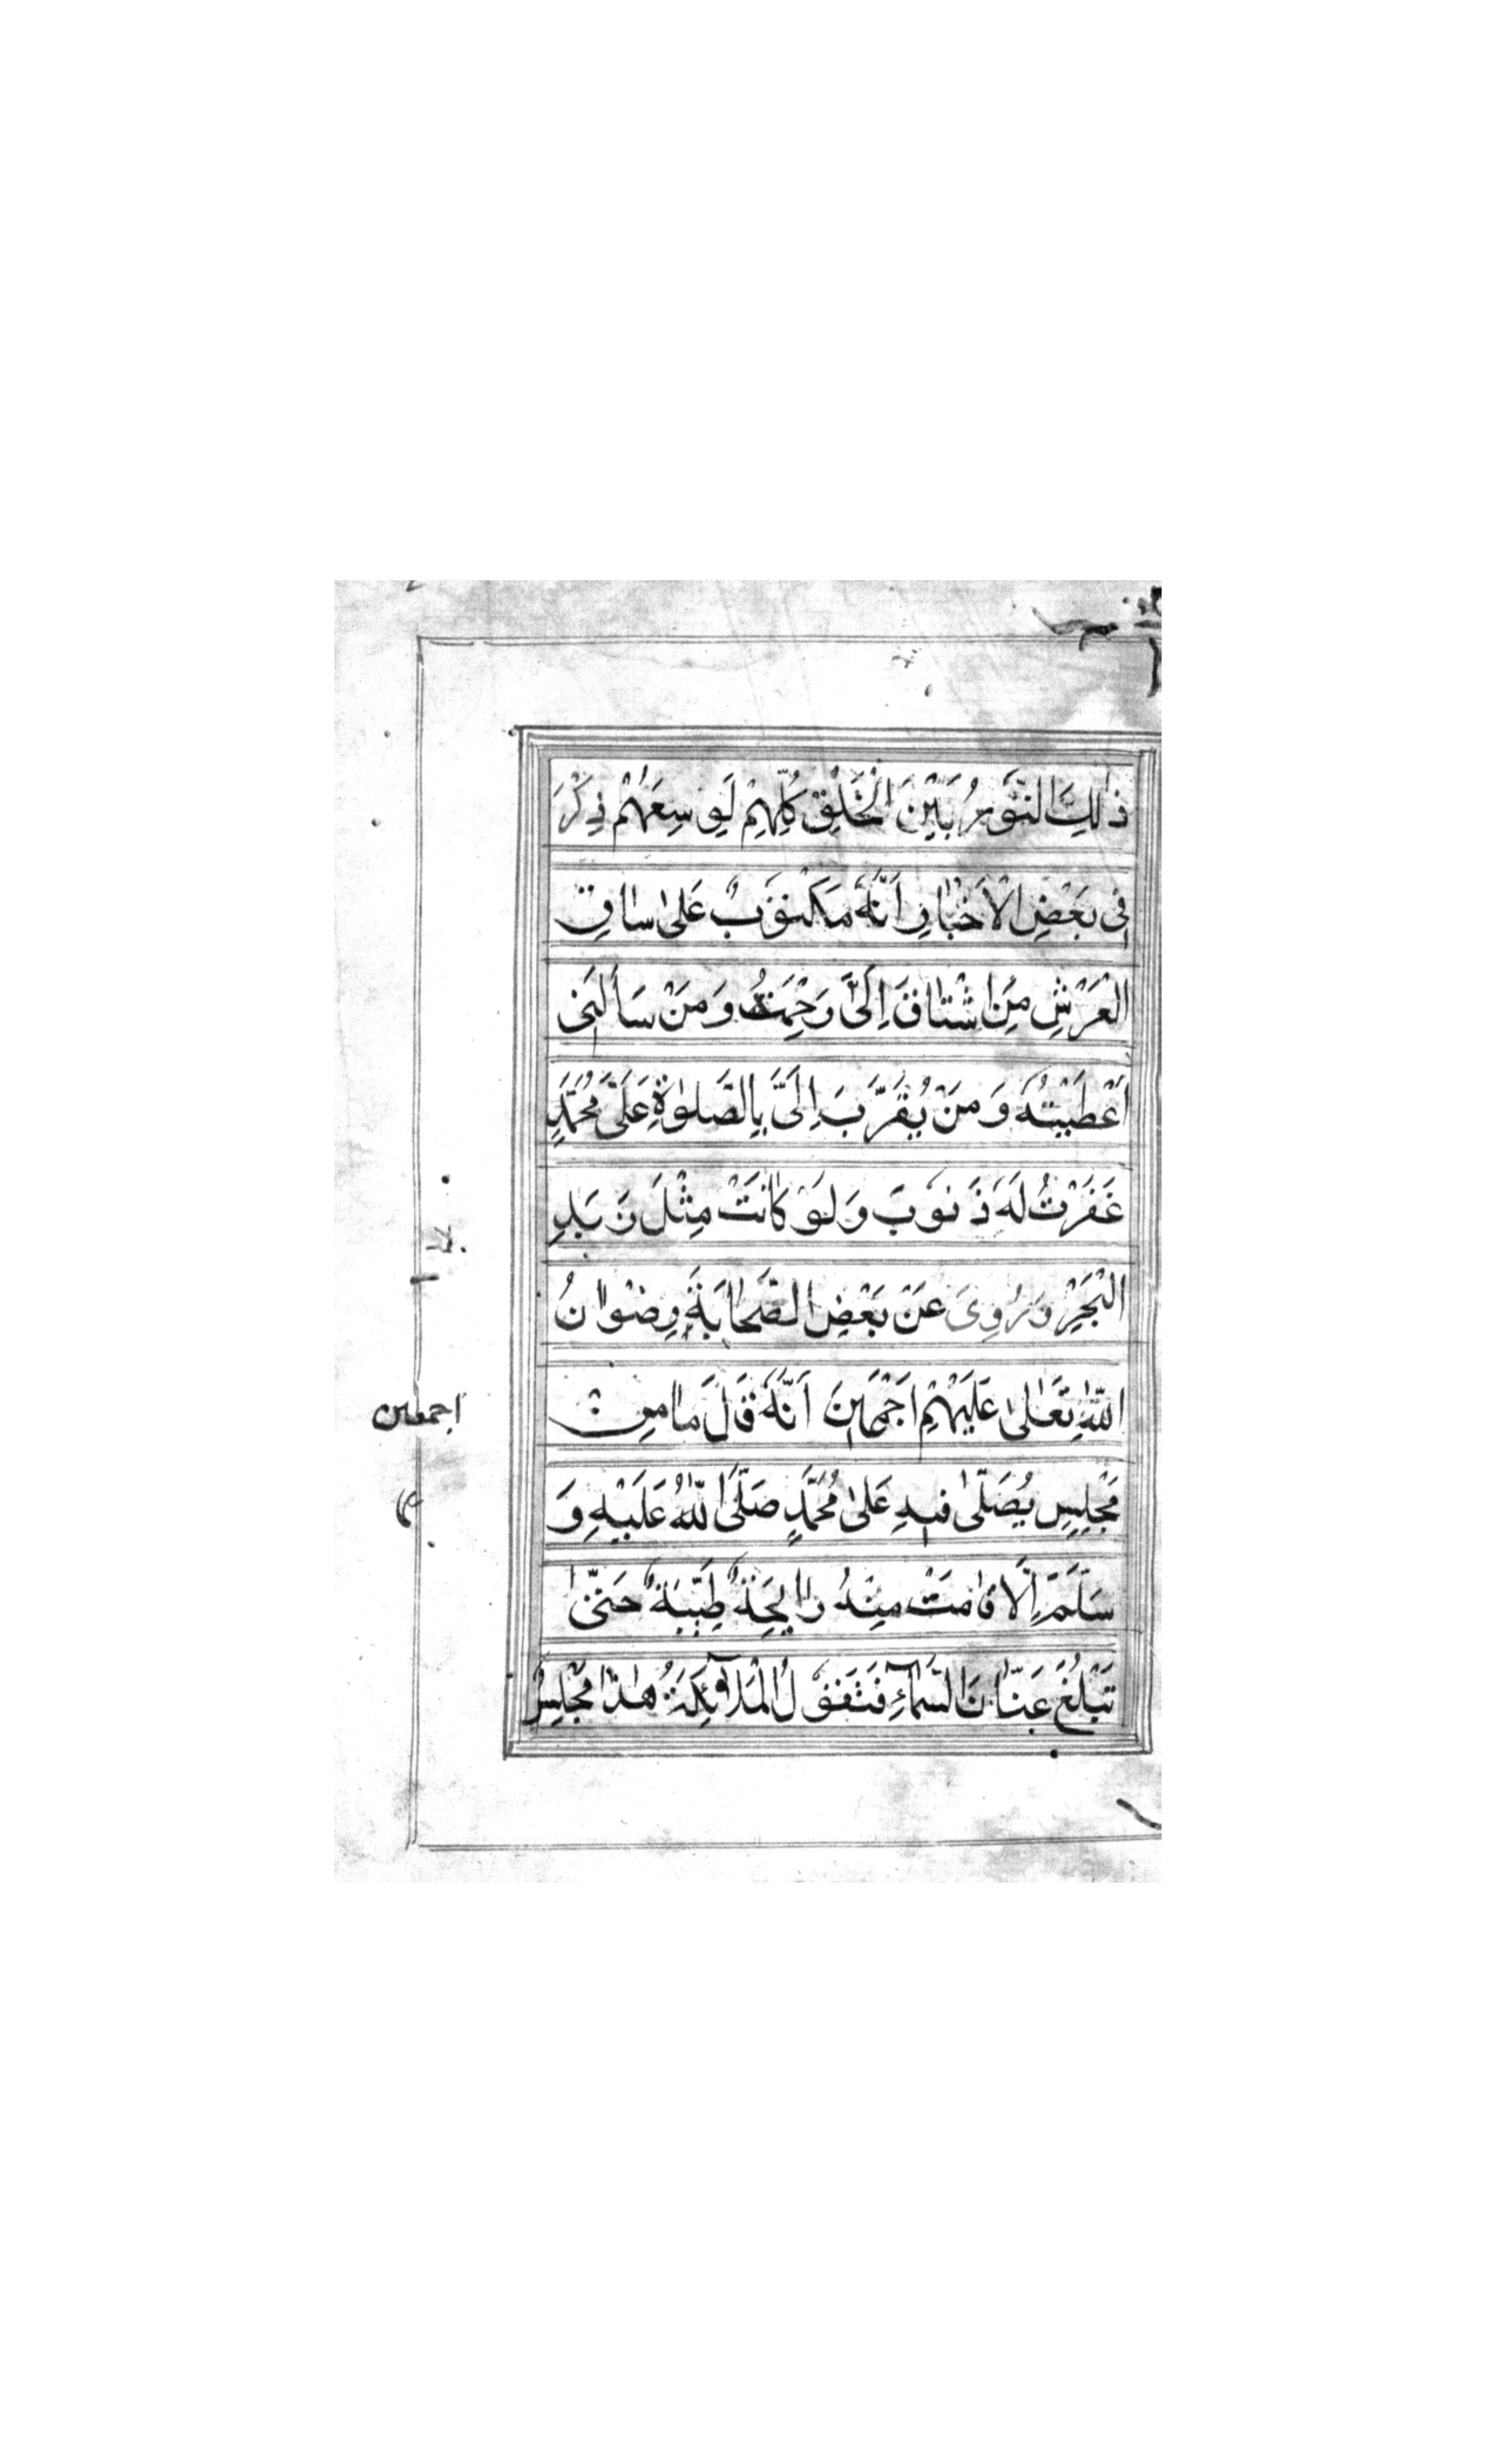 ذٰلِكَ النُّوْرُ بَيْنَ الْخَلْقِ كُلِّهِمْ لَوَسِعَهُمْ ذِكْرَ
فِى بَعْضِ الْاَخْبَارِ اَنَّهُ مَكْتُوْبٌ عَلىٰ سَاقِ
الْعَرْشِ مَنِ اشْتَاقَ اِلَىَّ رَحِمْتُهُ وَمَنْ سَاَلَنِى
اَعْطَيْتُهُ وَمَنْ يُقَرَّبَ اِلَىَّ بِالصَّلوٰةِ عَلىٰ مُحَمَّدٍ
غَفَرْتُ لَهُ ذَنُوبَ وَلَوْ كَانَتْ مِثْلَ زَبَدِ
الْبَحْرِ وَرُوِىَ عَنْ بَعْضِ الصَّحَابَةِ رِضْوَانُ
اللّٰهِ تَعَالىٰ عَلَيْهِمْ اَجْمَعِيْنَ اَنَّهُ قَالَ مَا مِنْ
اجمعين
مَجْلِسٍ يُصَلّٰى فِيْهِ عَلىٰ مُحَمَّدٍ صَلَّى اللّٰهُ عَلَيْهِ وَ
سَلَّمَ اِلَّا قَامَتْ مِنْهُ رَايِحَةٌ طَيِّبَةٌ حَتّٰى
تَبْلُغَ عَنَانَ السَّمَآءِ فَتَقُوْلُ الْمَلٰٓئِكَةُ هٰذَا مَجْلِسٌ